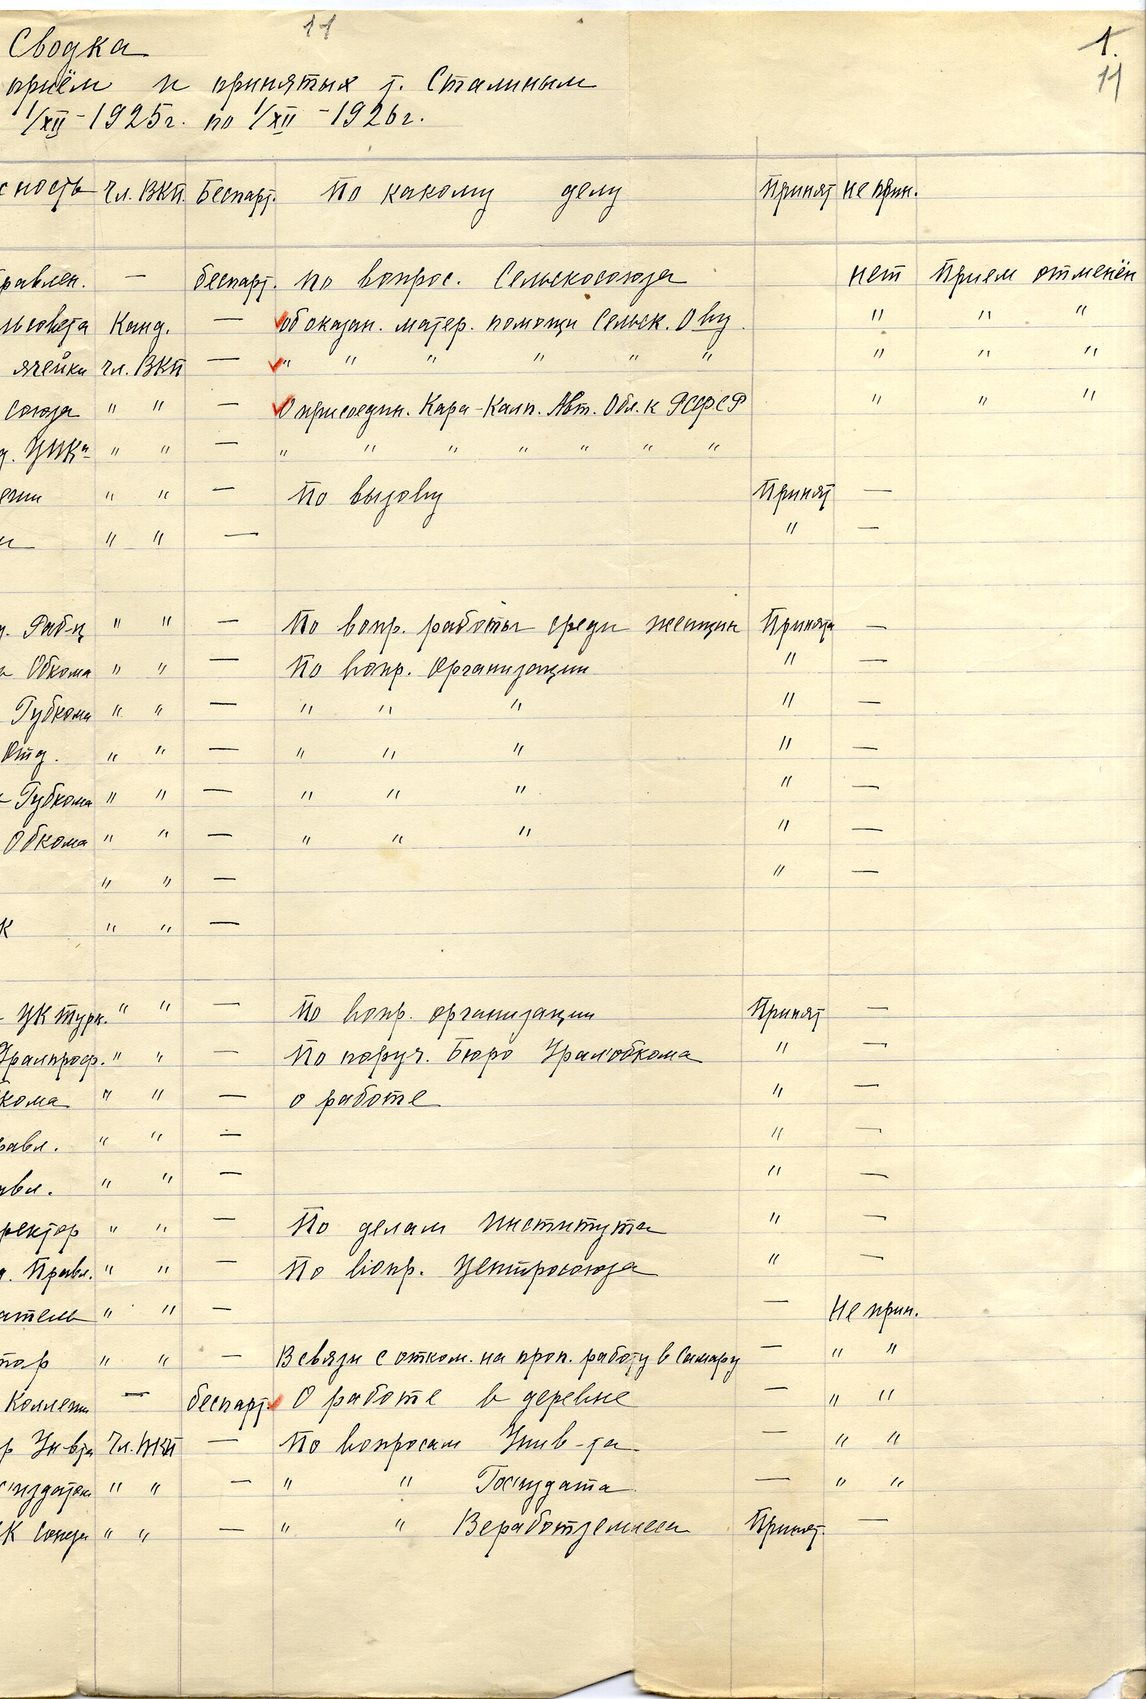 11
1.
11
Сводка
приём и принятых т. Сталиным
1/XII-1925г. по 1/XII-1926г.
сность Чл. ВКП. Беспарт. По какому делу Принят не прин.
равлен. — беспарт. по вопрос. Сельскосоюза нет Прием отменён
льсовета Канд. — об оказан. матер. помощи Сельск. О-ву " " "
ячейки чл. ВКП — " " " " " " " " "
союза " " — О присоедин. Кара-Калп. Авт. Обл. к РСФСР " " "
д. ЦИКа " " — " " " " " " "
егии " " — По вызову Принят —
" " — " —
д. Раб-ц " " — По вопр. работы среди женщин Принята —
Обкома " " — По вопр. Организации " —
Губкома " " — " " " " —
Отд. " " — " " " " —
Губкома " " — " " " " —
Обкома " " — " " " " —
" " — " —
К " " —
ЦК Турк. " " — По вопр. организации Принят —
Уралпроф. " " — По поруч. Бюро Уралобкома " —
кома " " — о работе " —
равл. " " — " —
авл. " " — " —
ректор " " — По делам Института " —
д. Правл. " " — По вопр. Центросоюза " —
атель " " — — Не прин.
тор " " — В связи с отком. на проп. работу в Самару — " "
Коллегии — беспарт. О работе в деревне — " "
р Ун-та Чл. ВКП — По вопросам Унив-та — " "
сиздатом " " — " " Госиздата — " "
К Союза " " — " " Всработземлеса Принят. —